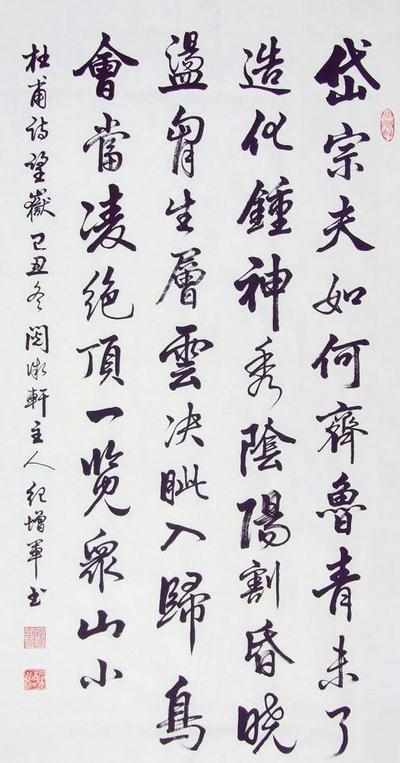 岱宗夫如何齊魯青未了
造化鍾神秀陰陽割昏曉
盪胷生層雲决眦入歸鳥
會當凌絶頂一覽衆山小
杜甫詩望嶽己丑冬閲微軒主人紀增軍書